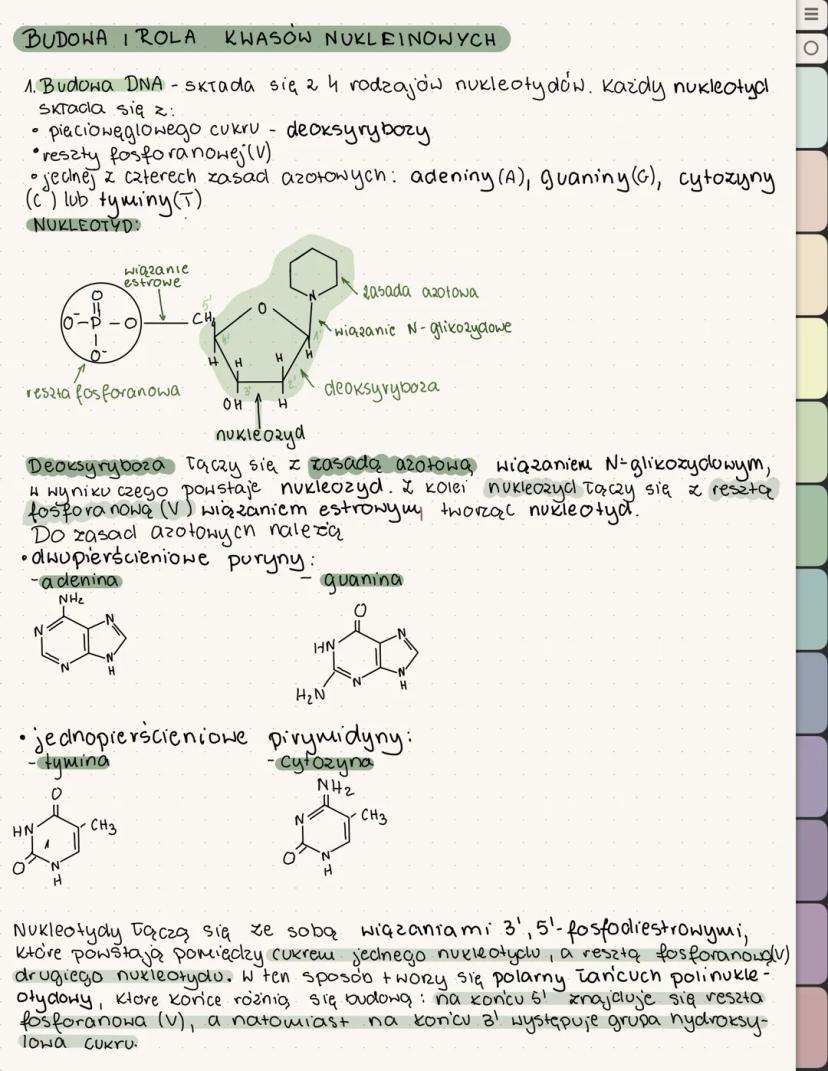 BUDOWA I ROLA KWASÓW NUKLEINOWYCH
1. Budowa DNA - składa się z 4 rodzajów nukleotydów. Każdy nukleotyd
składa się z:
• pięciowęglowego cukru - deoksyrybozy
• reszty fosforanowej (V)
• jednej z czterech zasad azotowych: adeniny (A), guaniny (G), cytozyny
(C) lub tyminy (T)
NUKLEOTYD:
wiązanie
estrowe
zasada azotowa
O
O⁻ - P - O
O⁻
CH₂
5'
O
N
wiązanie N-glikozydowe
4'
1'
H H H H
3' 2'
OH H
deoksyryboza
reszta fosforanowa
nukleozyd
Deoksyryboza łączy się z zasadą azotową wiązaniem N-glikozydowym,
w wyniku czego powstaje nukleozyd. Z kolei nukleozyd łączy się z resztą
fosforanową (V) wiązaniem estrowym tworząc nukleotyd.
Do zasad azotowych należą
• dwupierścieniowe puryny:
- adenina - guanina
NH₂
N N
N N
H
O
HN N
H₂N N N
H
• jednopierścieniowe pirymidyny:
- tymina - cytozyna
O
HN CH₃
O N
H
NH₂
N CH₃
O N
H
Nukleotydy łączą się ze sobą wiązaniami 3', 5'-fosfodiestrowymi,
które powstają pomiędzy cukrem jednego nukleotydu, a resztą fosforanową (V)
drugiego nukleotydu. W ten sposób tworzy się polarny łańcuch polinukle-
otydowy, które końce różnią się budową: na końcu 5' znajduje się reszta
fosforanowa (V), a natomiast na końcu 3' występuje grupa hydroksy-
lowa cukru.